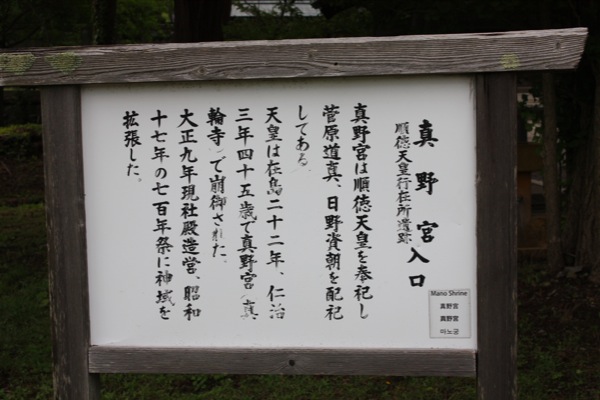 真野宮入口
順徳天皇行在所遺跡
真野宮は順徳天皇を奉祀し
菅原道真、日野資朝を配祀
してある
天皇は在島二十二年、仁治
三年四十五歳で真野宮(真
輪寺)で崩御された。
大正九年現社殿造営、昭和
十七年の七百年祭に神域を
拡張した。
Mano Shrine
真野宮
真野宫
마노궁